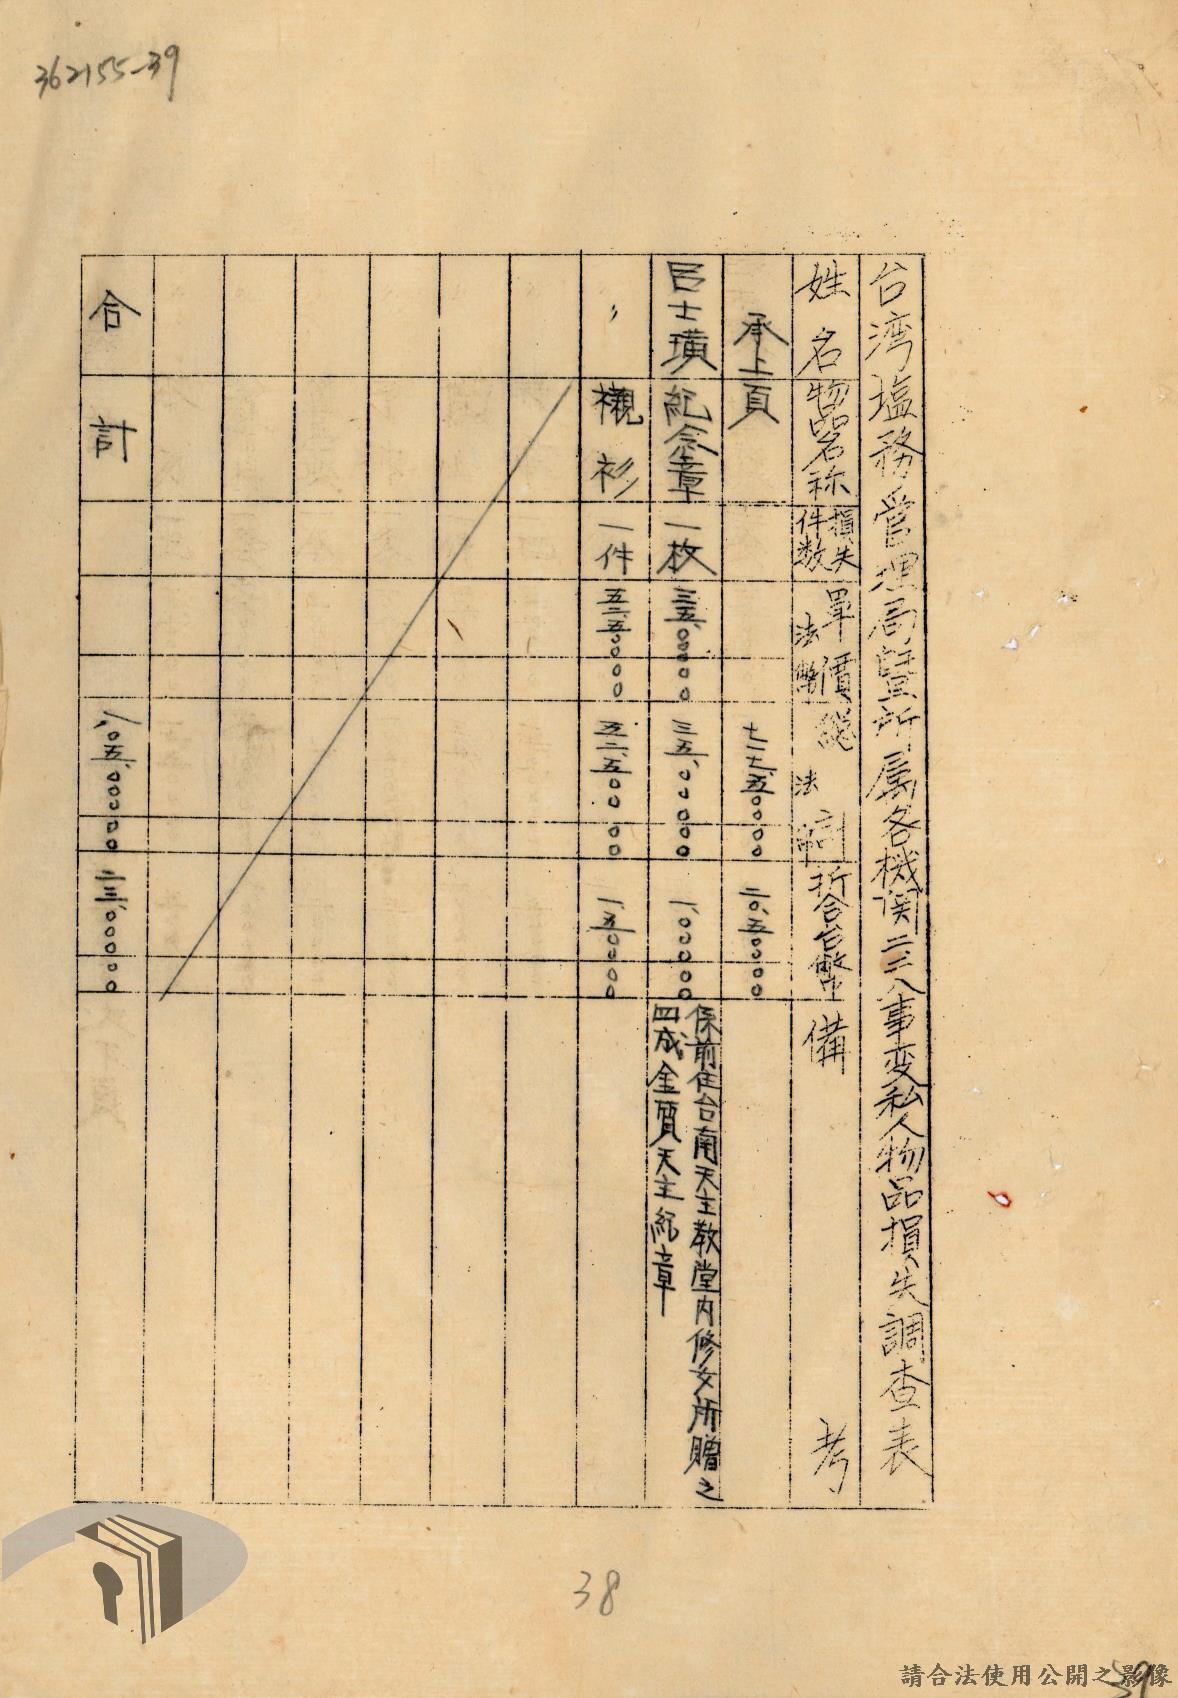 362155-39
台湾塩務管理局暨所属各機関二二八事変私人物品損失調查表
姓名 物品名称 損失件数 單價法幣 總計法幣 折合台幣 備考
承上頁 七一七、五〇〇〇〇 二〇、五〇〇〇〇
呂士璜 紀念章 一枚 三五、〇〇〇〇〇 三五、〇〇〇〇〇 一、〇〇〇〇〇 係前住台南天主教堂内修女所贈之
四成金質天主紀章
〃 襯衫 一件 五二、五〇〇〇〇 五二、五〇〇〇〇 一、五〇〇〇〇
合計 八〇五、〇〇〇〇〇 二三、〇〇〇〇〇
38
39
請合法使用公開之影像